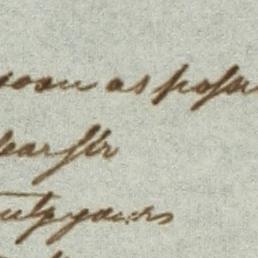 soon as possi
dear Sir
truly yours